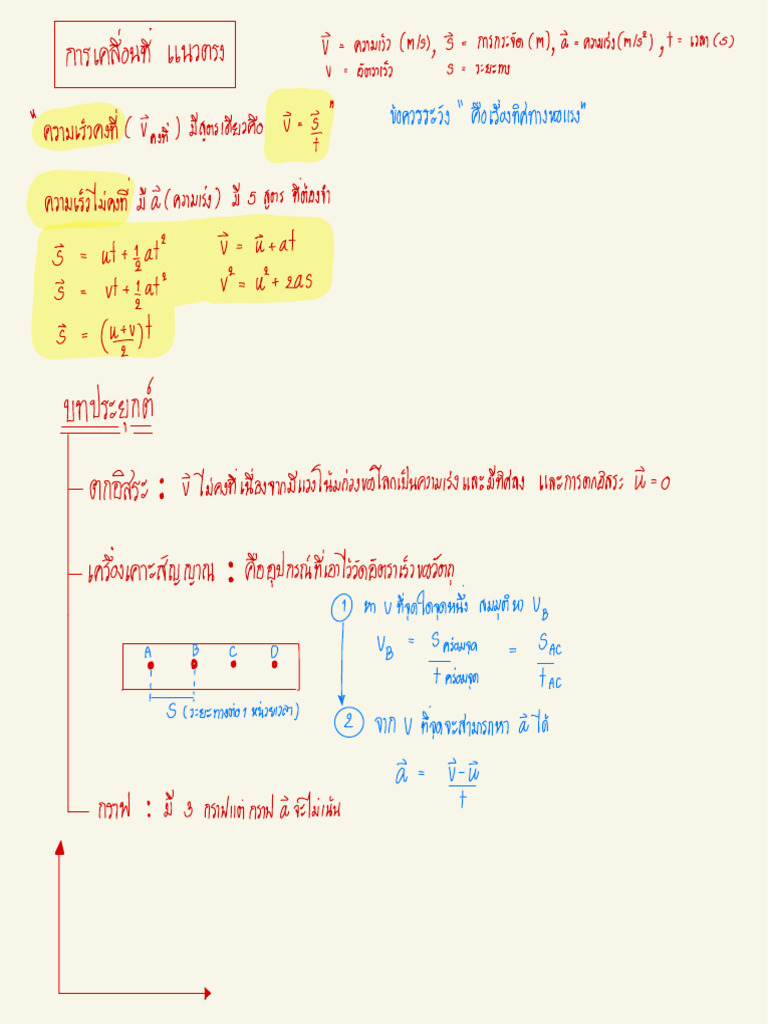 การเคลื่อนที่ แนวตรง
v⃗ = ความเร็ว (m/s), s⃗ = การกระจัด (m), a⃗ = ความเร่ง (m/s²), t = เวลา (s)
v = อัตราเร็ว s = ระยะทาง
"ความเร็วคงที่ (v⃗ คงที่) มีสูตรเดียวคือ v⃗ = s⃗/t"
ข้อควรระวัง "คือเรื่องทิศทางของแรง"
ความเร็วไม่คงที่ มี a⃗ (ความเร่ง) มี 5 สูตร ที่ต้องจำ
s⃗ = ut + ½at² v⃗ = u⃗ + at
s⃗ = vt + ½at² v² = u² + 2as
s⃗ = (u+v/2)t
บทประยุกต์
ตกอิสระ : v⃗ ไม่คงที่เนื่องจากมีแรงโน้มถ่วงของโลกเป็นความเร่ง และมีทิศลง และการตกอิสระ u⃗ = 0
เครื่องเคาะสัญญาณ : คืออุปกรณ์ที่เอาไว้วัดอัตราเร็วของวัตถุ
1 หา v ที่จุดใดจุดหนึ่ง สมมุติหา v_B
v_B = s คร่อมจุด / t คร่อมจุด = s_AC / t_AC
A B C D
s (ระยะทางต่อ 1 หน่วยเวลา)
2 จาก v ที่จุดจะสามารถหา a⃗ ได้
a⃗ = v⃗ - u⃗ / t
กราฟ : มี 3 กราฟแต่ กราฟ a⃗ จะไม่เน้น